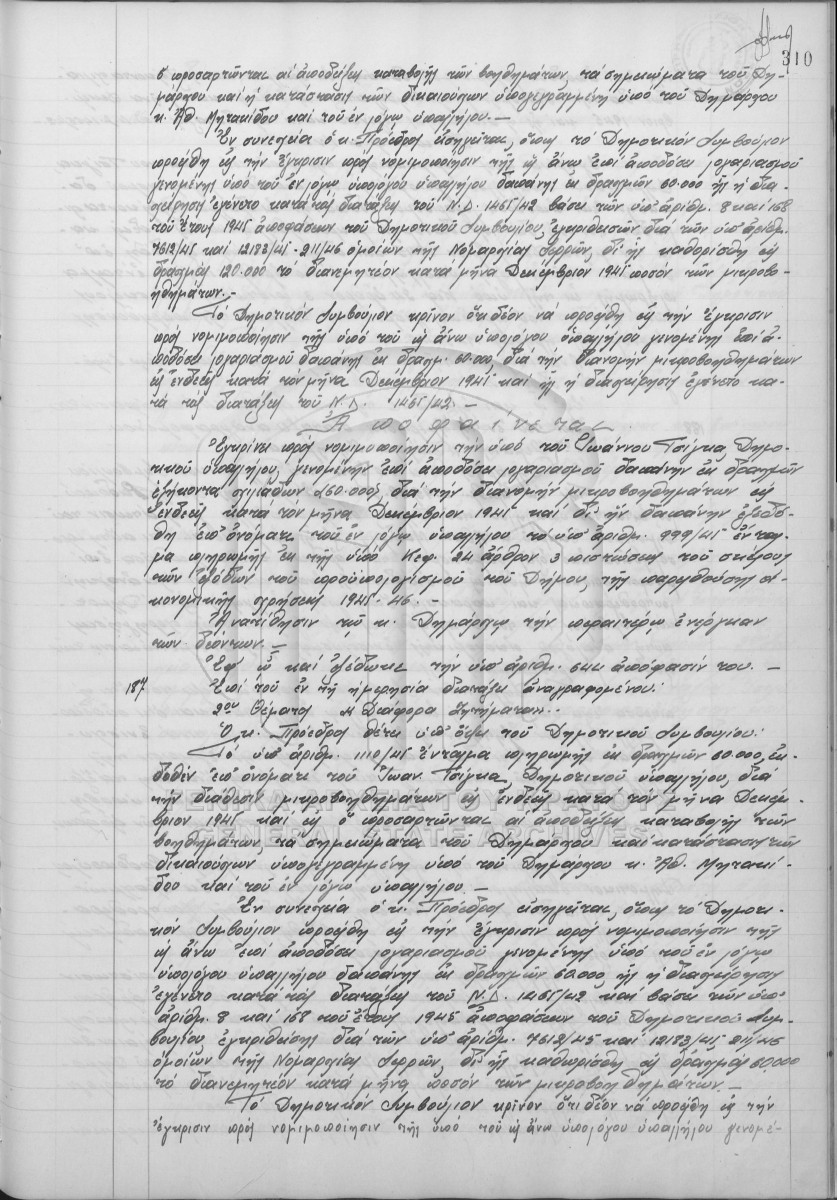 310
ὃ προσαρτῶνται αἱ ἀποδείξεις καταβολῆς τῶν βοηθημάτων, τὰ σημειώματα τοῦ Δη-
μάρχου καὶ ἡ κατάστασις τῶν δικαιούχων ὑπογεγραμμένη ὑπὸ τοῦ Δημάρχου
κ. Ἀθ. Μητακίδου καὶ τοῦ ἐν λόγῳ ὑπαλλήλου.—
Ἐν συνεχείᾳ ὁ κ. Πρόεδρος εἰσηγεῖται, ὅπως τὸ Δημοτικὸν Συμβούλιον
προέλθῃ εἰς τὴν ἔγκρισιν πρὸς νομιμοποίησιν τῆς ὡς ἄνω ἐπὶ ἀποδόσει λογαριασμοῦ
γενομένης ὑπὸ τοῦ ἐν λόγῳ ὑπολόγου ὑπαλλήλου δαπάνης ἐκ δραχμῶν 60.000 ἧς ἡ δια-
χείρησις ἐγένετο κατὰ τὰς διατάξεις τοῦ Ν.Δ. 1465/42 βάσει τῶν ὑπ' ἀριθμ. 8 καὶ 168
τοῦ ἔτους 1945 ἀποφάσεων τοῦ Δημοτικοῦ Συμβουλίου, ἐγκριθεισῶν διὰ τῶν ὑπ' ἀριθμ.
7612/45 καὶ 12183/45-211/46 ὁμοίων τῆς Νομαρχίας Σερρῶν, δι' ἧς καθορίσθη εἰς
δραχμὰς 120.000 τὸ διανεμητέον κατὰ μῆνα Δεκέμβριον 1945 ποσὸν τῶν μικροβο-
ηθημάτων.—
Τὸ Δημοτικὸν Συμβούλιον κρῖνον ὅτι δέον νὰ προέλθῃ εἰς τὴν ἔγκρισιν
πρὸς νομιμοποίησιν τῆς ὑπὸ τοῦ ὡς ἄνω ὑπολόγου ὑπαλλήλου γενομένης ἐπὶ ἀ-
ποδόσει λογαριασμοῦ δαπάνης ἐκ δραχμ. 60.000, διὰ τὴν διανομὴν μικροβοηθημάτων
εἰς ἐνδεεῖς κατὰ τὸν μῆνα Δεκέμβριον 1945 καὶ ἧς ἡ διαχείρησις ἐγένετο κα-
τὰ τὰς διατάξεις τοῦ Ν.Δ. 1465/42.—
Ἀποφαίνεται
Ἐγκρίνει πρὸς νομιμοποίησιν τὴν ὑπὸ τοῦ Ἰωάννου Τσίγκα Δημο-
τικοῦ ὑπαλλήλου, γενομένην ἐπὶ ἀποδόσει λογαριασμοῦ δαπάνην ἐκ δραχμῶν
ἑξήκοντα χιλιάδων (60.000), διὰ τὴν διανομὴν μικροβοηθημάτων εἰς
ἐνδεεῖς κατὰ τὸν μῆνα Δεκέμβριον 1945 καὶ δι' ἣν δαπάνην ἐξεδό-
θη ἐπ' ὀνόματι τοῦ ἐν λόγῳ ὑπαλλήλου τὸ ὑπ' ἀριθμ. 999/45 ἔνταλ-
μα πληρωμῆς ἐκ τῆς ὑπὸ Κεφ. 24 ἄρθρον 3 πιστώσεως τοῦ σκέλους
τῶν ἐξόδων τοῦ προϋπολογισμοῦ τοῦ Δήμου, τῆς παρελθούσης οἰ-
κονομικῆς χρήσεως 1945-46.—
Ἀνατίθησιν τῷ κ. Δημάρχῳ τὴν περαιτέρω ἐνέργειαν
τῶν δεόντων.—
Ἐφ' ᾧ καὶ ἐξέδωκε τὴν ὑπ' ἀριθμ. 544 ἀπόφασίν του.—
187 Ἐπὶ τοῦ ἐν τῇ ἡμερησίᾳ διατάξει ἀναγραφομένου:
2ου Θέματος «Διάφορα Ζητήματα».
Ὁ κ. Πρόεδρος θέτει ὑπ' ὄψει τοῦ Δημοτικοῦ Συμβουλίου:
Τὸ ὑπ' ἀριθμ. 1110/45 ἔνταλμα πληρωμῆς ἐκ δραχμῶν 60.000, ἐκ-
δοθὲν ἐπ' ὀνόματι τοῦ Ἰωαν. Τσίγκα, Δημοτικοῦ ὑπαλλήλου, διὰ
τὴν διάθεσιν μικροβοηθημάτων εἰς ἐνδεεῖς κατὰ τὸν μῆνα Δεκέμ-
βριον 1945 καὶ εἰς ὃ προσαρτῶνται αἱ ἀποδείξεις καταβολῆς τῶν
βοηθημάτων, τὰ σημειώματα τοῦ Δημάρχου καὶ κατάστασις τῶν
δικαιούχων ὑπογεγραμμένη ὑπὸ τοῦ Δημάρχου κ. Ἀθ. Μητακί-
δου καὶ τοῦ ἐν λόγῳ ὑπαλλήλου.—
Ἐν συνεχείᾳ ὁ κ. Πρόεδρος εἰσηγεῖται, ὅπως τὸ Δημοτι-
κὸν Συμβούλιον προέλθῃ εἰς τὴν ἔγκρισιν πρὸς νομιμοποίησιν τῆς
ὡς ἄνω ἐπὶ ἀποδόσει λογαριασμοῦ γενομένης ὑπὸ τοῦ ἐν λόγῳ
ὑπολόγου ὑπαλλήλου δαπάνης ἐκ δραχμῶν 60.000, ἧς ἡ διαχείρησις
ἐγένετο κατὰ τὰς διατάξεις τοῦ Ν.Δ. 1465/42 καὶ βάσει τῶν ὑπ'
ἀριθμ. 8 καὶ 168 τοῦ ἔτους 1945 ἀποφάσεων τοῦ Δημοτικοῦ Συμ-
βουλίου ἐγκριθείσης διὰ τῶν ὑπ' ἀριθμ. 7612/45 καὶ 12183/45 211/46
ὁμοίων τῆς Νομαρχίας Σερρῶν, δι' ἧς καθωρίσθη εἰς δραχμὰς 60.000
τὸ διανεμητέον κατὰ μῆνα ποσὸν τῶν μικροβοηθημάτων.—
Τὸ Δημοτικὸν Συμβούλιον κρῖνον ὅτι δέον νὰ προέλθῃ εἰς τὴν
ἔγκρισιν πρὸς νομιμοποίησιν τῆς ὑπὸ τοῦ ὡς ἄνω ὑπολόγου ὑπαλλήλου γενομέ-
ΓΕΝΙΚΑ ΑΡΧΕΙΑ ΤΟΥ ΚΡΑΤΟΥΣ
GENERAL STATE ARCHIVES